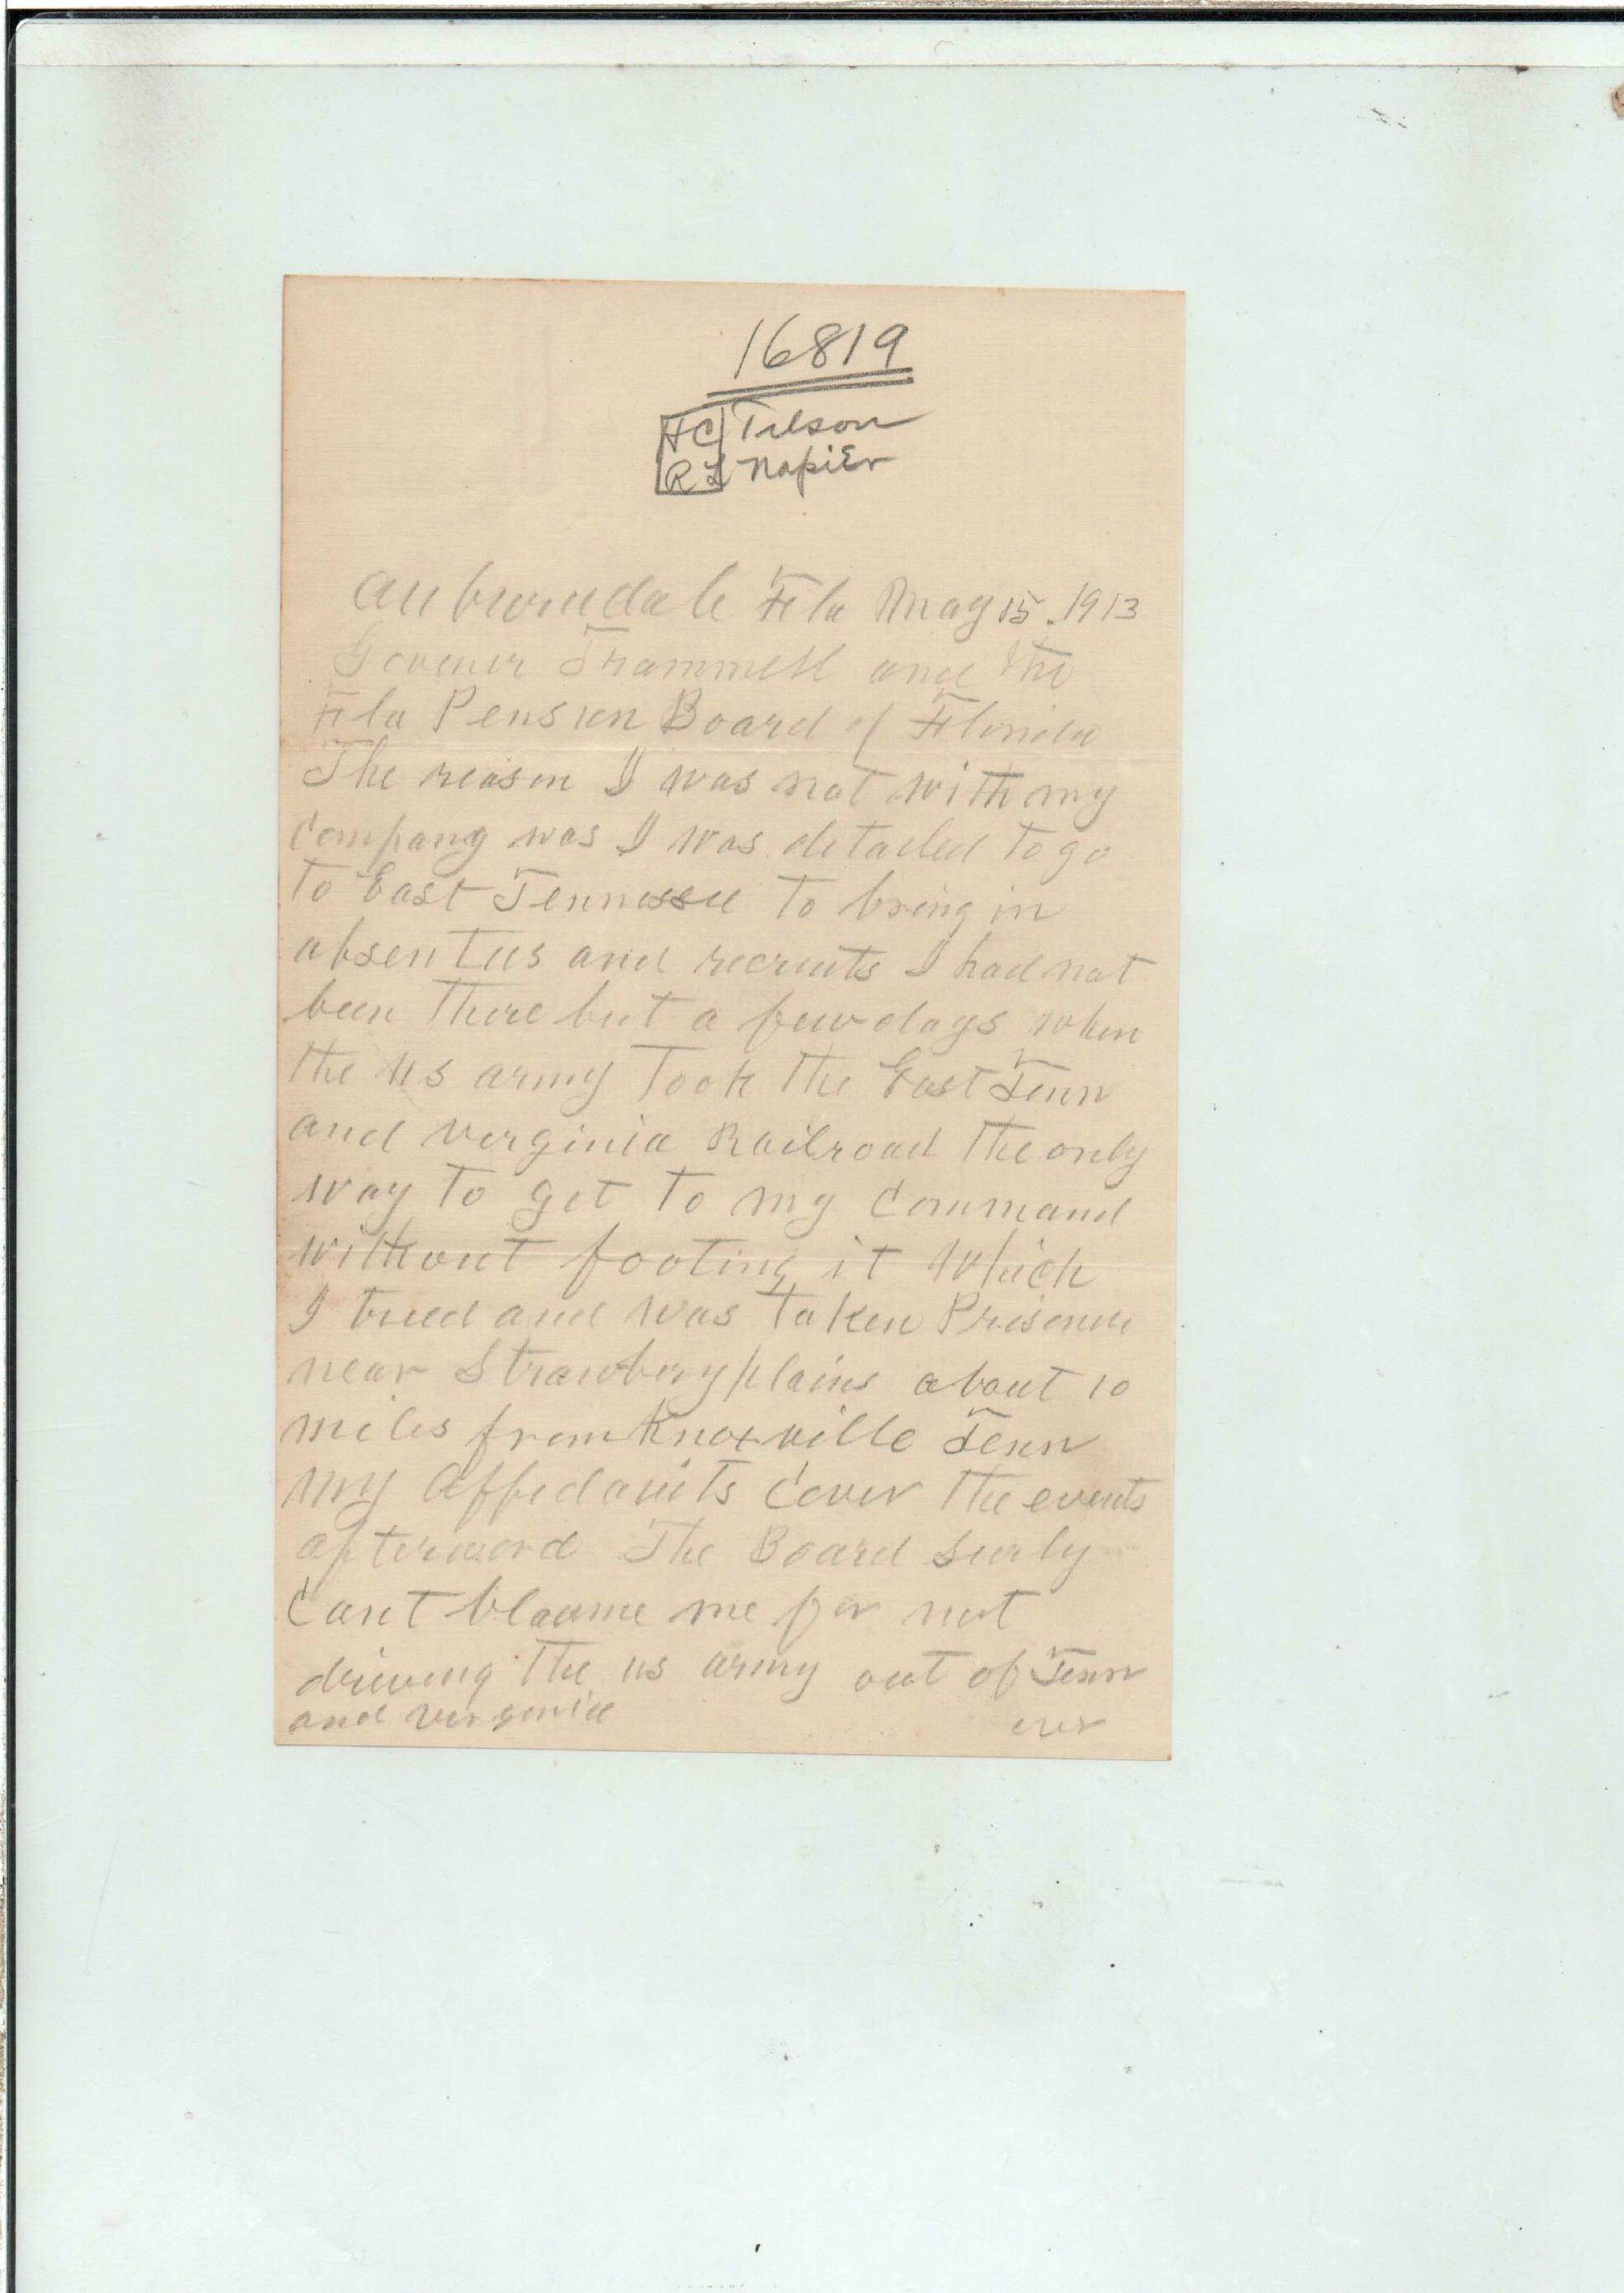 16819
HC Tilson
RL Napier
Auburndale Fla May 15. 1913
Govener Trammell and the
Fla Pension Board of Florida
The reason I was not with my
Company was I was detailed to go
to East Tennessee to bring in
absentees and recruits I had not
been there but a few days when
the us army Took the East Tenn
and verginia Railroad the only
way to get to my Command
without footing it which
I tried and was taken Prisoner
near Strawbery plains about 10
miles from Knoxville Tenn
my Affidavits Cover the events
afterword The Board surly
Cant blaume me for not
driveing the us army out of Tenn
and verginia over